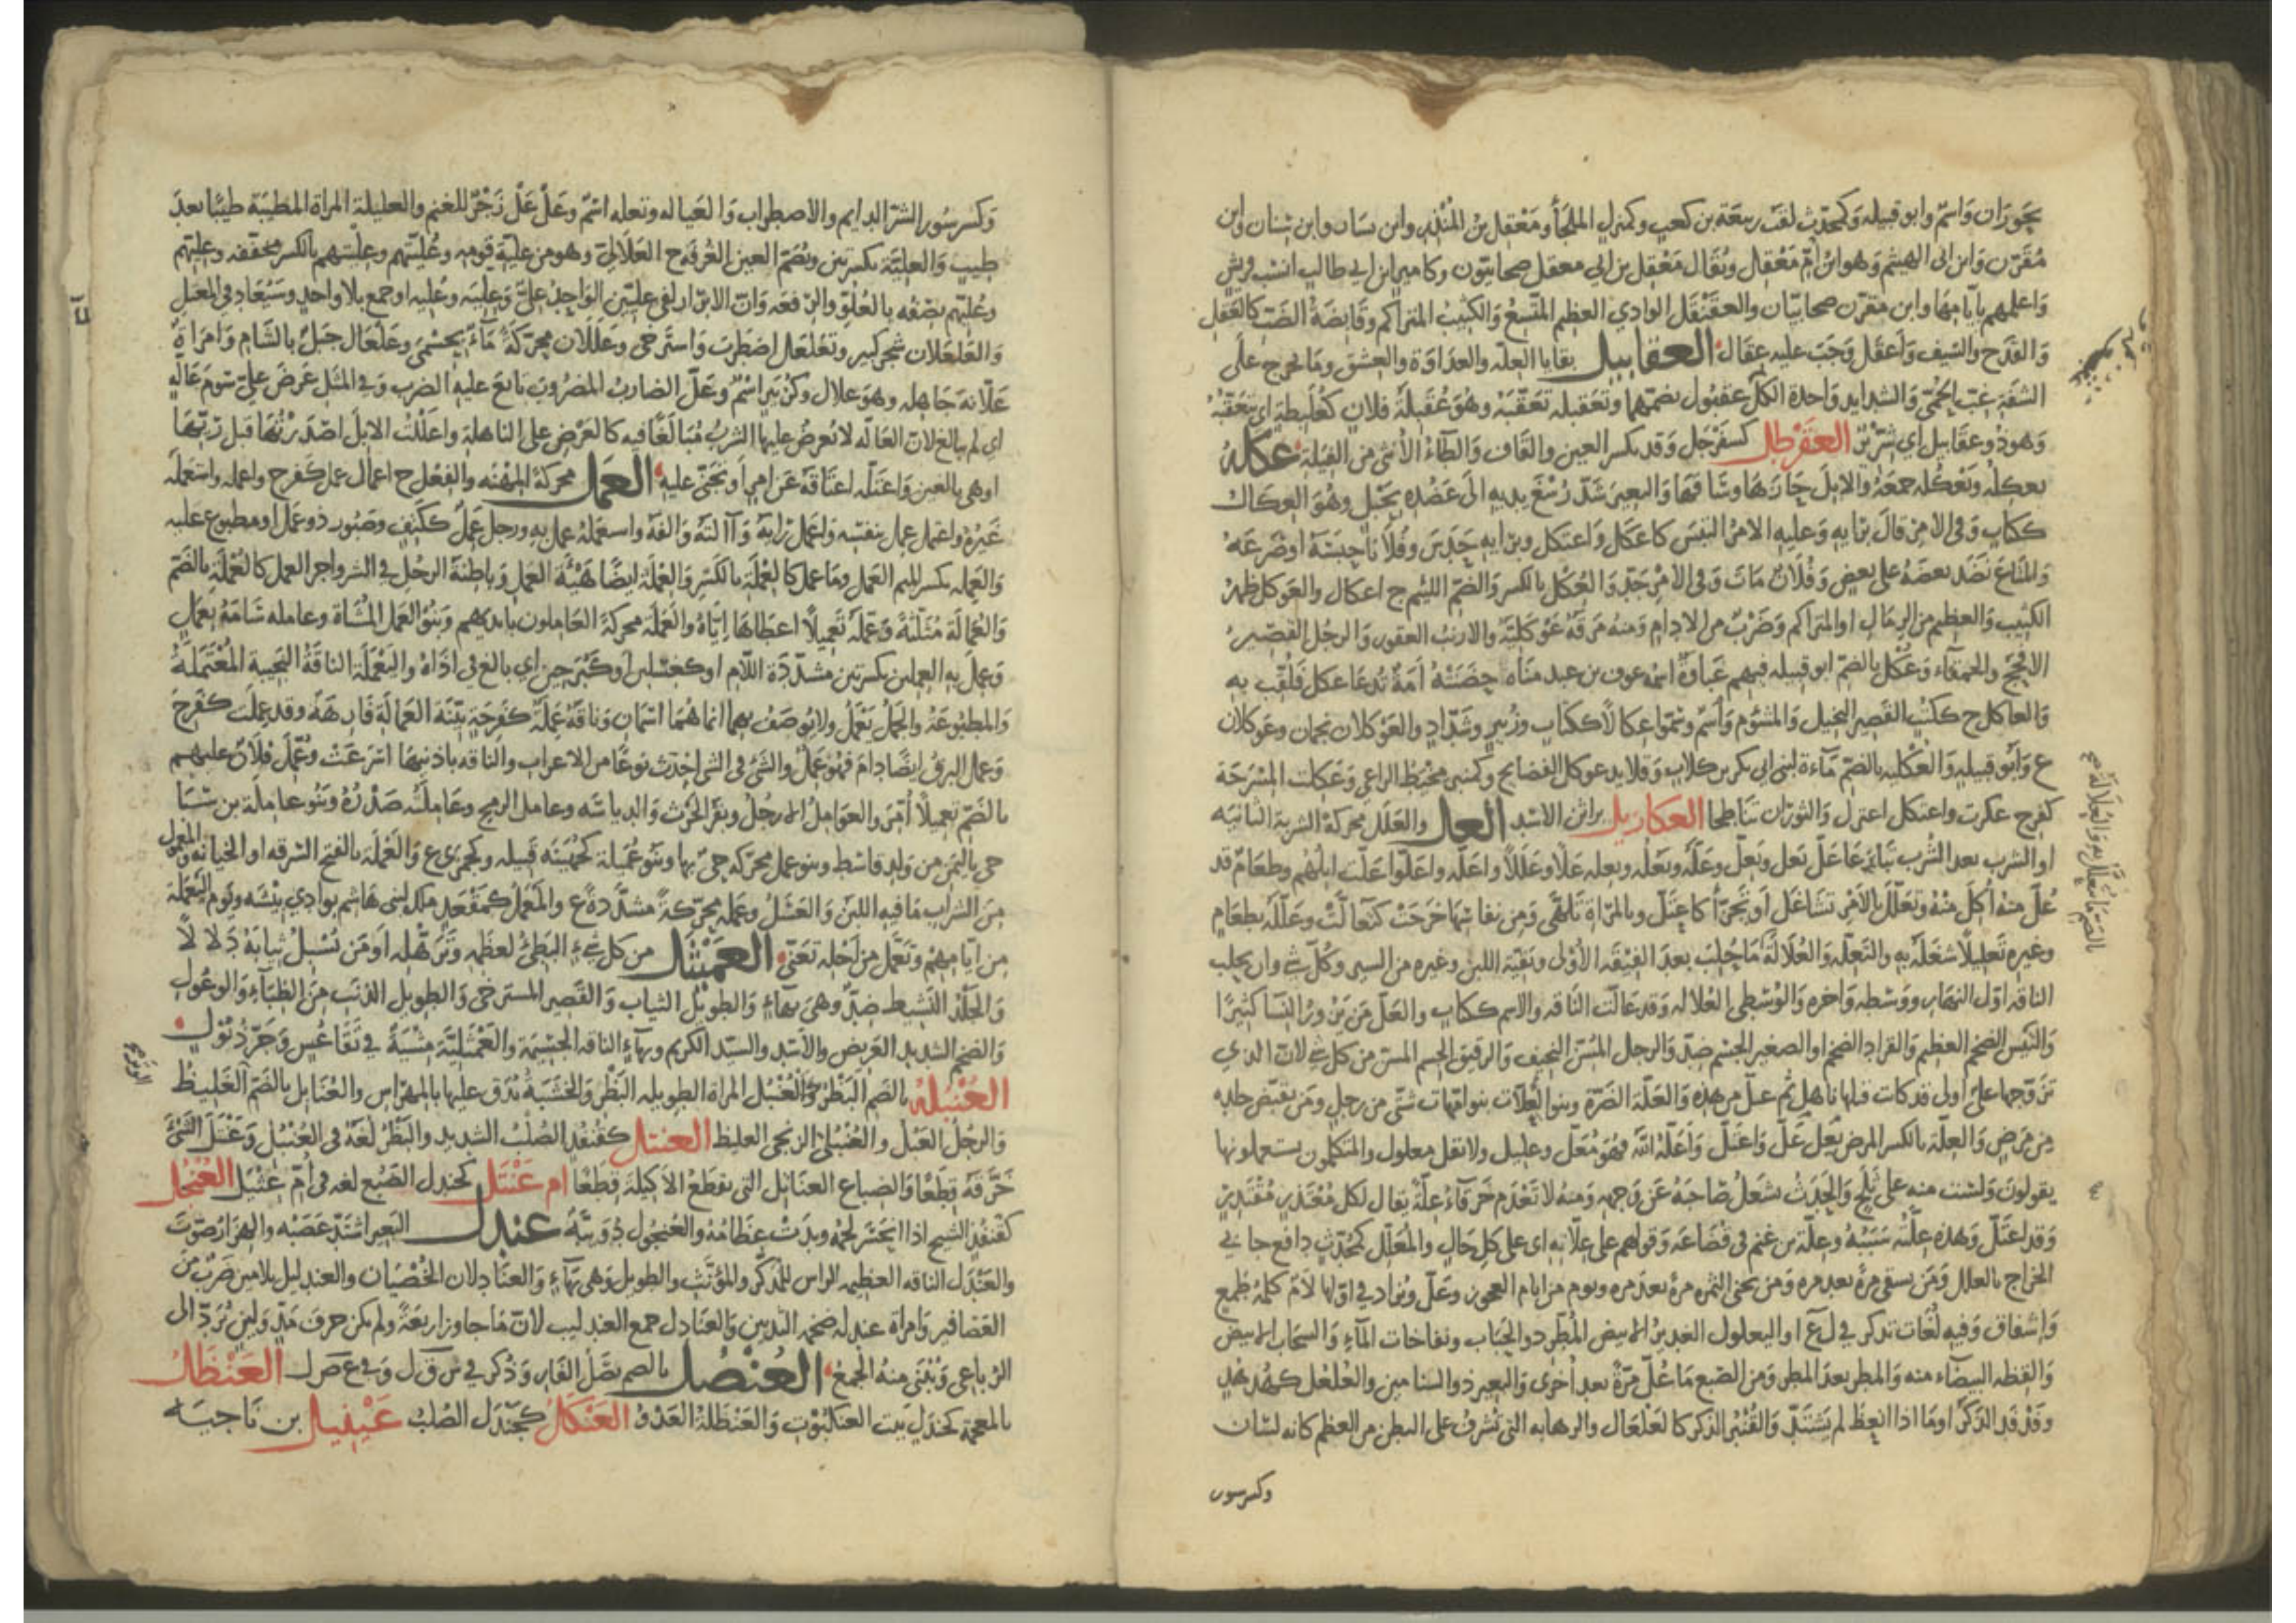 بحوران واسم وابو قبيله وكمحدث لقب ربيعة بن كعب وكمنزل الملجأ ومعقل بن المنذر وابن يسار وابن سنان وابن
مقرن وابن ابى الهيثم وهو ابن ام معقل ويقال معقل بن ابي معقل صحابيون وكامير ابن ابي طالب انسب قريش
واعلمهم بايامها وابن مقرن صحابيان والعقنقل الوادي العظيم المتسع والكثيب المتراكم وقانصة الضب كالعقل
والقدح والسيف واعقل وجب عليه عقال العقابيل بقايا العلة والعداوة والعشق وما يخرج على
الشفة غب الحمى والشدايد واحدة الكل عقبول بضمهما وتعقبله تعقبه وهو عقبلة فلان كعلبطة اي يتعقبه
وهو ذو عقابيل اي شرير العقرطل كسفرجل وقد تكسر العين والقاف والطاء الانثى من الفيلة عكله
يعكله ويعكله جمعه والابل حازها وساقها والبعير شد رسغ يديه الى عضده بحبل وهو العكال
ككتاب وفي الامر قال برايه وعليه الامر التبس كاعكل واعتكل وبرايه حدس وفلانا حبسه او صرعه
والمتاع نضد بعضه على بعض وفلان مات وفي الامر جد والعكل بالكسر والضم اللئيم ج اعكال والعوكل ظهر
الكثيب والعظيم من الرمال او المتراكم وضرب من الادام ومنه مرقه عوكلية والارنب العقور والرجل القصير
الافحج والحمقاء وعكل بالضم ابو قبيله فيهم غباوة اسمه عوف بن عبد مناه حضنته امة تدعا عكل فلقب به
والعاكل ج ككتب القصير البخيل والمشؤم واسم وسموا عكالا ككتاب وزبير وشداد والعوكلان نجمان وعوكلان
ع وابو قبيله والعكليه بالضم ماءة لبنى ابي بكر بن كلاب وقلايد عوكل الفضايح وكمنبر مخيط الراعي وعكلت المسرجة
كفرح عكرت واعتكل اعتزل والثوران تناطحا العكابيل براثن الاسد العل والعلل محركة الشربة الثانيه
او الشرب بعد الشرب تباعا عل يعل ويعل وعله يعله ويعله علا وعللا واعله واعلوا علت ابلهم وطعام قد
عل منه اكل منه وتعلل بالامر تشاغل او تجزأ كاعتل وبالمراة تلهى ومن نفاسها خرجت كتعالت وعلله بطعام
وغيره تعليلا شغله به والتعلة والعلالة ما حلب بعد الفيقة الاولى وبقية اللبن وغيره من السير وكل شي وان يحلب
الناقه اول النهار ووسطه واخره والوسطى العلاله وقد عالت الناقه والاسم ككتاب والعل من يزور النسا كثيرا
والتيس الضخم العظيم والقراد الضخم او الصغير الجسم ضد والرجل المسن النحيف والرقيق الجسم المسن من كل شي لان الذي
تزوجها على اولى قد كانت قبلها ناهل ثم عل من هذه والعلة الضرة وبنو العلات بنو امهات شتى من رجل ومن تقبض جلده
من مرض والعلة بالكسر المرض يعل عل واعتل واعله الله فهو معل وعليل ولا تقل معلول والمتكلمون يستعملونها
يقولون ولست منه على ثلج والحدث شغل صاحبه عن وجهه ومنه لا تعدم خرقاء علة يقال لكل معتذر مقتدر
وقد اعتل وهذه علته سببه وعلة بن غنم في قضاعه وقولهم على علاته اى على كل حال والمعلل كمحدث دافع جابي
الخراج بالعلل ومن يسقي مرة بعد مره ومن يجني الثمره مرة بعد مره ويوم من ايام العجوز وعل ويزاد في اولها لام كلمة طمع
واشفاق وفيه لغات تذكر في ل ع ا واليعلول الغدير الابيض المطرد والحباب ونفاخات الماء والسحاب الابيض
والقطه البيضاء منه والمطر بعد المطر ومن الصبغ ما عل مرة بعد اخرى والبعير ذو السنامين والعلعل كهدهد
وفدفد الذكر او ما اذا انعظ لم يشتد والقنبر الذكر كالعلعال والرهابه التي تشرف على البطن من العظم كانه لسان
وكسرسور
وكسرسور الشر الدايم والاضطراب والعياله وتعله اسم وعل عل زجر للغنم والعليلة المراة المطيبة طيبا بعد
طيب والعلية بكسرتين وتضم العين الغرفة ج العلالي وهو من علية قومه وعليتهم وعليتهم بالكسر مخففه وعليهم
والعلعلان شجر كبير وتعلعل اضطرب واسترخى وعللان محركة ماء بحسمى وعلعال جبل بالشام وامراة
علانة جاهله وهو علان وكزبير اسم وعل الضارب المضروب تابع عليه الضرب وفي المثل عرض علي سوم عالة
اي لم يبالغ لان العاله لا يعرض عليها الشرب مبالغا فيه كالعرض على الناهلة واعللت الابل اصدرتها قبل ريها
او هى بالغين واعتله اعتاقه عن امر او تجنى عليه العمل محركة المهنه والفعل ج اعمال عمل كفرح واعمله واستعمله
غيره واعتمل عمل بنفسه واعمل رايه وآلته وآلفه واستعمله عمل به ورجل عمل ككتف وصبور ذو عمل او مطبوع عليه
والعمله بكسر الميم العمل وما عمل كالعملة بالكسر والعملة ايضا هيئة العمل وباطنة الرجل في الشر واجر العمل كالعملة بالضم
والعمالة مثلثة وعمله تعميلا اعطاها اياه والعملة محركة العاملون بايديهم وبنو العمل المشاة وعامله سامه بعمل
وعمل به العملين بكسرتين مشددة اللام او كغسلين او كبرحين اي بالغ في اذاه واليعملة الناقة النجيبة المعتملة
والمطبوعة والجمل يعمل ولا يوصف بهما انما هما اسمان وناقة عملة كفرحة بينة العمالة فارهة وقد عملت كفرح
وعمل البرق ايضا دام فهو عمل والشئ في الشئ احدث نوعا من الاعراب والناقه باذنيها اسرعت وعمل فلان عليهم
بالضم تعميلا امر والعوامل الارجل وبقر الحرث والدياسه وعامل الرمح وعاملته صدره وبنو عاملة بن سبا
حي باليمن من ولد قاسط وبنو عمل محركه حي بها وبنو عميلة كجهينه قبيله وكجمزى ع والعملة بالفتح السرقه او الخيانه والمعمول
من الشراب ما فيه اللبن والعسل وعملى محركة مشددة ع والمعمل كمقعد ملك لبنى هاشم بوادي بيشه ويوم اليعملة
من ايامهم وتعمل من اجله تعنى العميثل من كل شيء البطئ لعظمه وترهله او من يسبل ثيابه دلالا
والجلد النشيط ضد وهي بهاء والطويل الثياب والقصير المسترخى والطويل الذنب من الظباء والوعول
والضخم الشديد العريض والاسد والسيد الكريم وبهاء الناقه الجسيمة والعميثلية مشية في تقاعس وجر ذيول
العنبله بالضم البظر والعنبل المراة الطويله البظر والخشبة يدق عليها بالمهراس والعنابل بالضم الغليظ
والرجل العبل والعنبلى الزنجى الغليظ العنتل كقنفذ الصلب الشديد والبظر لغة في العنبل وعنتل الشئ
خرقه قطعا والضباع العنابل التى تقطع الاكيلة قطعا ام عنثل كجندل الضبع لغه في ام عثيل العنجل
كقنفذ الشيخ اذا انحسر لحمه وبدت عظامه والعنجول دويبة عندل البعير اشتد عصبه والهزار صوت
والعندل الناقه العظيمه الراس للمذكر والمؤنث والطويل وهي بهاء والعنادلان الخصيان والعندليل بلامين ضرب من
العصافير وامراة عندله ضخمة الثديين والعنادل جمع العندليب لان ما جاوز اربعة ولم يكن حرف مد ولين يرد الى
الرباعى ويبنى منه الجمع العنصل بالضم بصل الفار وذكر في س ق ل وفي ع ص ل العنظل
بالمعجمة كجندل بيت العنكبوت والعنظلة العدو العنكل كجندل الصلب عينيل بن ناجيه